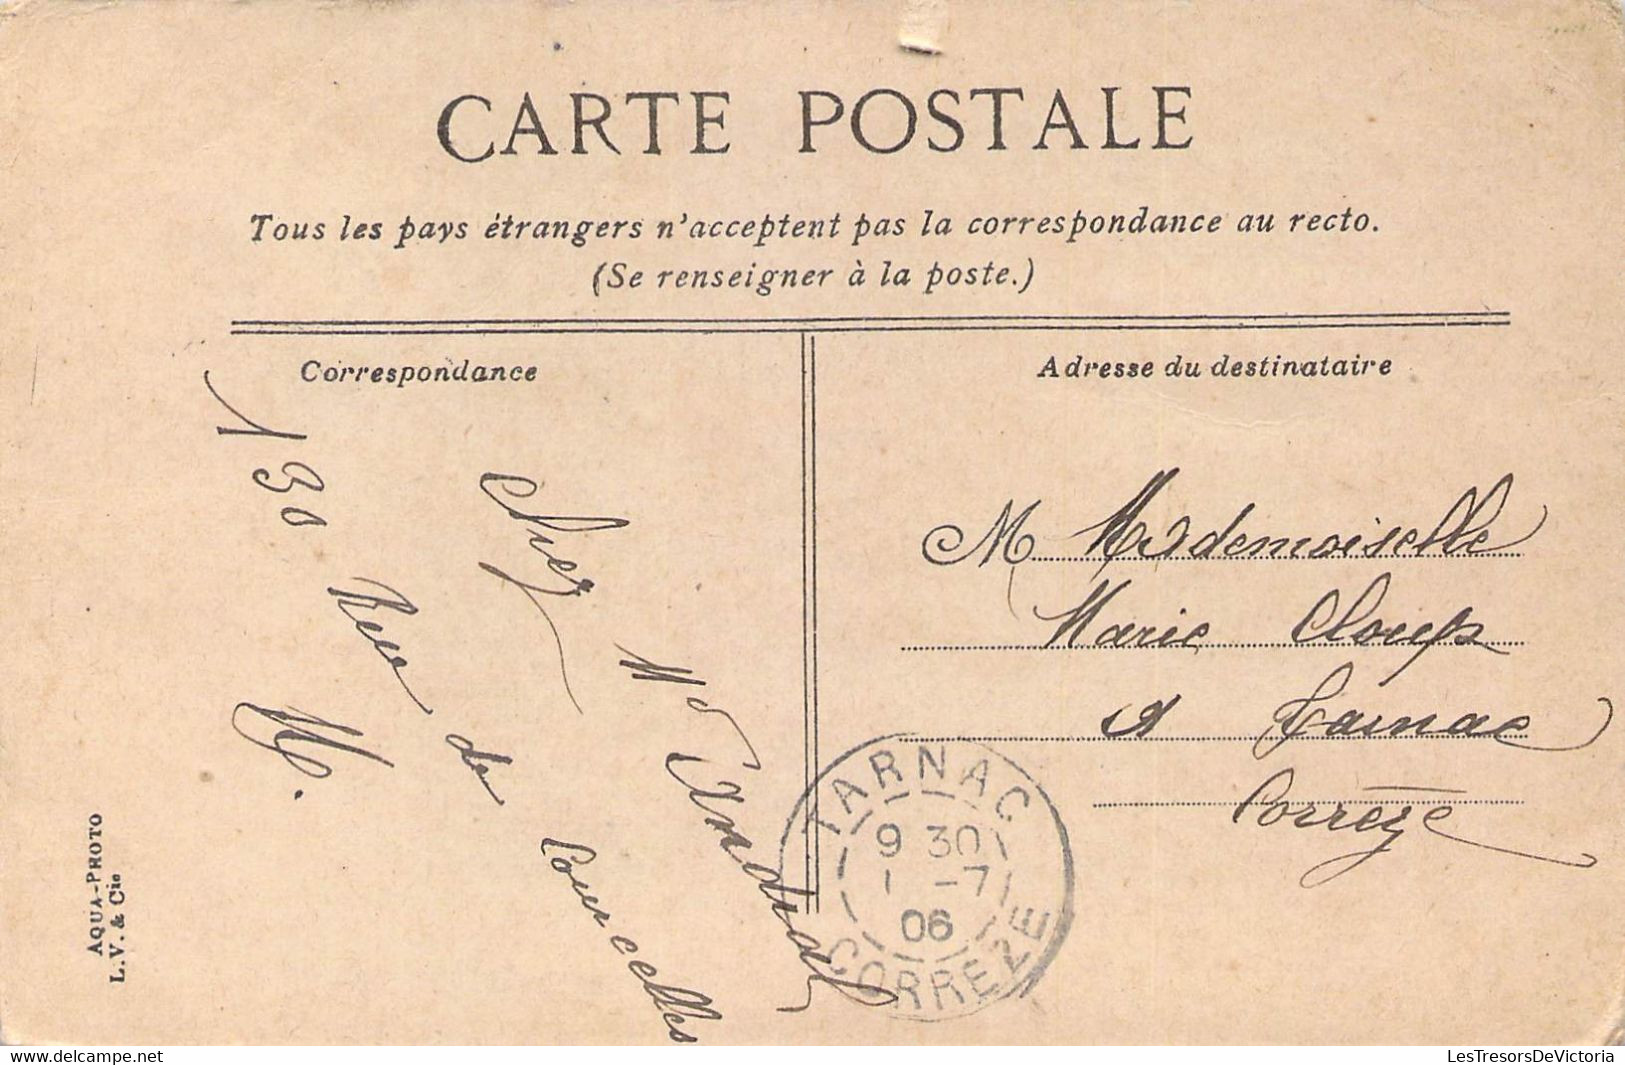 CARTE POSTALE
Tous les pays étrangers n'acceptent pas la correspondance au recto.
(Se renseigner à la poste.)
Correspondance
Chez Mr
130 Rue de Courcelles
Adresse du destinataire
M Mademoiselle
Marie Cloups
à Tarnac
Corrèze
TARNAC
9 30
1 -7
06
CORREZE
AQUA-PHOTO
L.V. & Cie
LesTresorsDeVictoria
https://www.delcampe.net